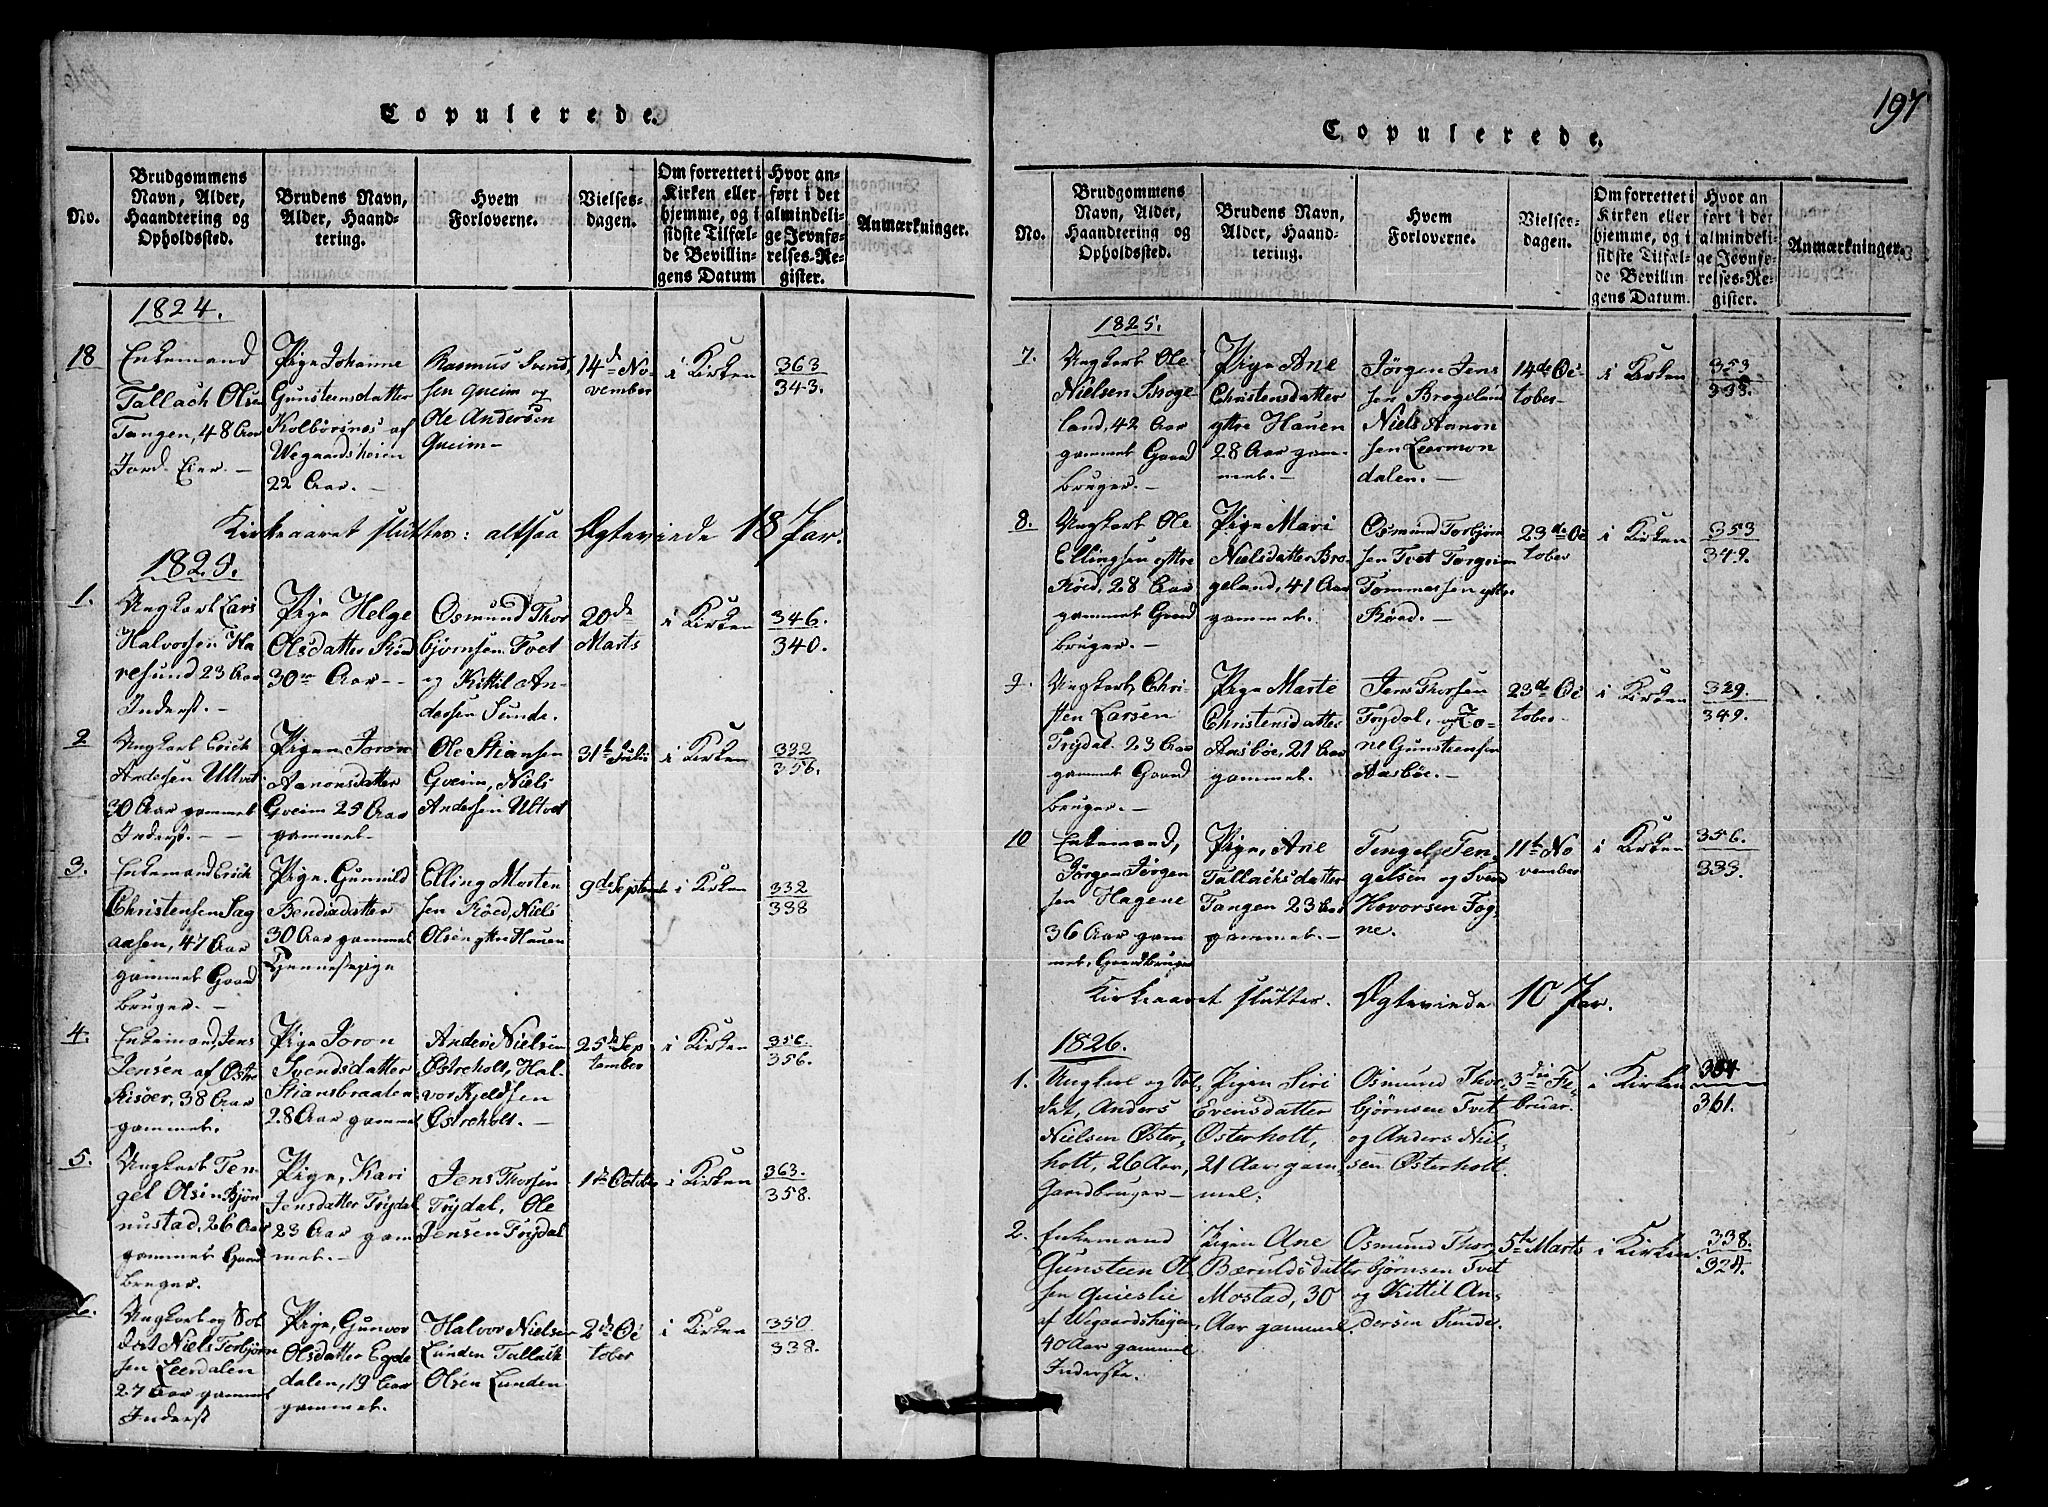 Copulerede.
No.
Brudgommens
Navn, Alder,
Haandtering og
Opholdssted.
Brudens Navn,
Alder, Haand-
tering.
Hvem
Forloverne.
Vielses-
dagen.
Om forrettet i
Kirken eller
hjemme, og i
sidste Tilfæl-
de Bevillin-
gens Datum
Hvor an-
ført i det
almindeli-
ge Jevnfø-
relses-Re-
gister.
Anmærkninger.
1824.
18
Enkemand
Tallach Olsen
Tangen, 48 Aar
Jord. Eier. —
Pige Johanne
Gunsteensdatter
Kolbörsnes af
Wegaardsheien
22 Aar. —
Rasmus Svend,
sen Gueim og
Ole Andersen
Gueim —
14de No-
vember
i Kirken
363
343.
Kirkeaaret slutter: altsaa Ægteviede 18 Par.
1825.
1.
Ungkarl Lars
Halvorsen Ha
resund 23 Aar
Inderst. —
Pige Helge
Olsdatter Röd
30 Aar —
Osmund Thor
bjørnsen Tvet
og Kittil An-
dersen Sunde.
20de
Marts
i Kirken
346.
340.
2
Ungkarl Erich
Andersen Ultvet
30 Aar gammel
Inderst. —
Pigen Joron
Aanonsdatter
Gveim 25 Aar
gammel —
Ole Stiansen
Gveim, Niels
Andersen Ultvet
31te Julii
i Kirken
332
356.
3.
Enkemand Erich
Christensen Sag
aasen, 47 Aar
gammel Gaard
bruger. —
Pige. Gunnild
Bendixdatter
30 Aar gammel
Tjenestepige
Elling Morten
sen Röed, Niels
Olsen yttre Hauen
9de September
i Kirken
332
338
4.
Enkemand, Jens
Jensen af Østre
Risöer, 38 Aar
gammel.
Pige Joron
Svendsdatter
Stiansbraaten
28 Aar gammel
Anders Nielsen
Østreholt, Hal-
vor Kjeldsen
Østreholt. —
25de Sep
tember
i Kirken
356.
356.
5.
Ungkarl Ten-
gel Olsen Bjön
nustad, 26 Aar
gammel Gaard
bruger.
Pige, Kari
Jensdatter Trydal
23 Aar gam
mel. —
Jens Thorsen
Trydal, Ole
Jensen Trydal
1ste October
i Kirken
363.
358.
6.
Ungkarl og Sol
dat Niels Torbjørn
sen Leerdalen
27 Aar gammel
Inderst
Pige, Gunvor
Olsdatter Egde
dalen, 19 Aar
gammel.
Halvor Nielsen
Lunden Tallach
Olsen Lunden
2de Oc
tober
i Kirken
350
338.
197
Copulerede.
No.
Brudgommens
Navn, Alder,
Haandtering og
Opholdssted.
Brudens Navn,
Alder, Haand-
tering.
Hvem
Forloverne.
Vielses-
dagen.
Om forrettet i
Kirken eller
hjemme, og i
sidste Tilfæl-
de Bevillin-
gens Datum.
Hvor an
ført i det
almindeli-
ge Jevnfø-
relses-Re-
gister.
Anmærkninger.
1825.
7.
Ungkarl Ole
Nielsen Broge-
land, 42 Aar
gammel Gaard
bruger. —
Pige Ane
Christensdatter
yttre Hauen
28 Aar gam-
mel. —
Jørgen Jens
sen Brogeland
Niels Aanon
sen Leermon
dalen. —
14de Oc-
tober —
i Kirken
353
333.
8.
Ungkarl Ole
Ellingsen yttre
Röed, 28 Aar
gammel Gaard
bruger. —
Pige Mari
Nielsdatter Bro
geland, 41 Aar
gammel.
Osmund Torbjørn
sen Tvet Torgrim
Tommassen yttre
Röed. —
23de Oc
tober
i Kirken
353
349.
9.
Ungkarl, Chri-
sten Larsen
Trydal. 23 Aar
gammel Gaard
bruger. —
Pige Marte
Christensdatter
Aasböe, 21 Aar
gammel.
Jens Thorsen
Trydal, og To-
ne Gunsteensen
Aasböe. —
23de Oc
tober —
i Kirken
329.
349.
10
Enkemand,
Jörgen Jörgen
sen Hagene
36 Aar gam
mel. Gaardbruger
Pige, Ane
Tallachsdatter
Tangen 23 Aar
gammel. —
Tengel Ten,
gelsen og Svend
Hovorsen Fog,
ne.
11te No
vember
i Kirken
356.
333.
Kirkeaaret slutter. Ægteviede 10 Par.
1826.
1.
Ungkarl og Sol,
dat, Anders
Nielsen Øster-
holt, 26 Aar,
Gaardbruger —
Pigen Siri
Evensdatter
Osterholt,
21 Aar gam,
mel.
Osmund Thor,
bjørnsen Tvet
og Anders Niel-
sen Østerholt
3die Fe,
bruar.
i Kirken
354
361.
2.
Enkemand
Gunsteen Ol,
sen Quieslie
af Wegaardsheyen,
40 Aar gammel
Inderste.
Pigen Ane
Bæruldsdatter
Mostad, 30
Aar gammel.
Osmund Thor,
bjørnsen Tvet
og Kittil An,
dersen Sunde.
5te Marts
i Kirken.
338.
324.